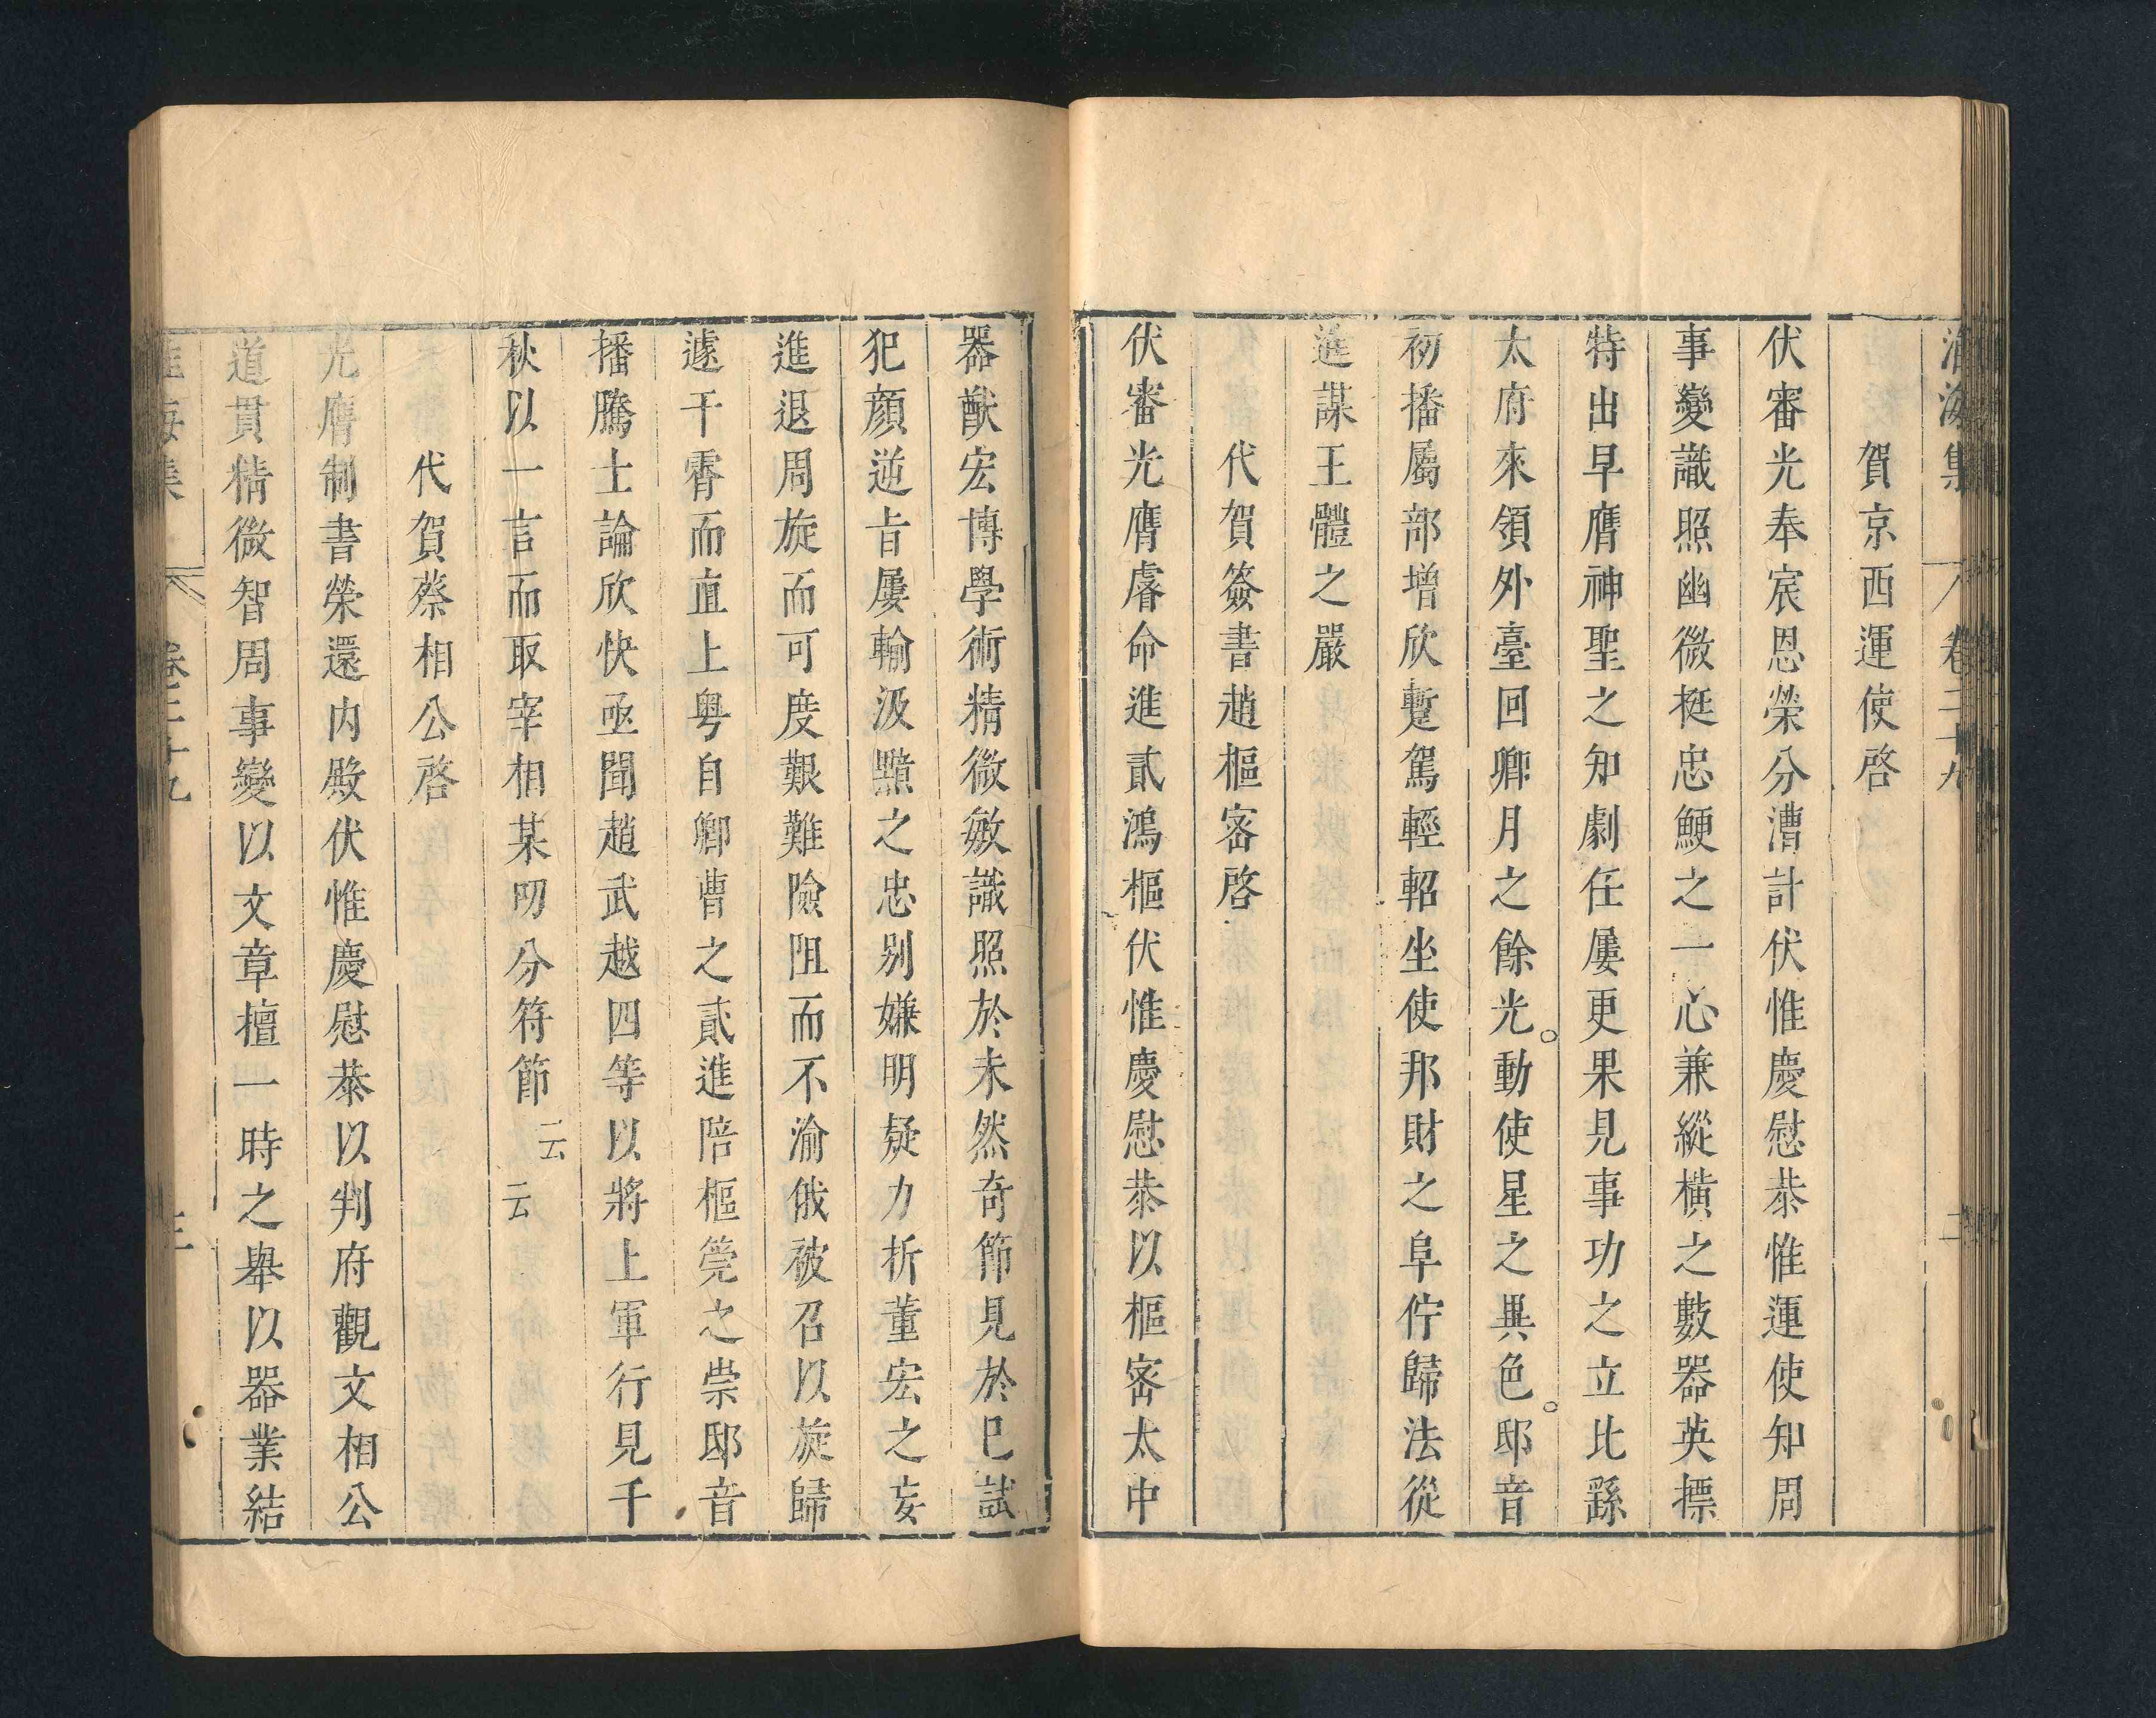 淮海集 卷二十九 二
賀京西運使啓
伏審光奉宸恩榮分漕計伏惟慶慰恭惟運使知周
事變識照幽微挺忠鯁之一心兼縱橫之數器英摽
特出早膺神聖之知劇任屢更果見事功之立比繇
太府來領外臺回卿月之餘光動使星之異色邸音
初播屬部增欣蹔駕輕軺坐使邦財之阜佇歸法從
進謀王體之嚴
代賀簽書趙樞密啓
伏審光膺睿命進貳鴻樞伏惟慶慰恭以樞密太中
器猷宏博學術精微敏識照於未然奇節見於已試
犯顔逆㫖屢輸汲黯之忠别嫌明疑力折董宏之妄
進退周旋而可度艱難險阻而不渝俄被召以旋歸
遽干霄而直上粤自卿曹之貳進陪樞筦之崇邸音
播騰士論欣快亟聞趙武越四等以將上軍行見千
秋以一言而取宰相某叨分符節云云
代賀蔡相公啓
光膺制書榮還内殿伏惟慶慰恭以判府觀文相公
道貫精微智周事變以文章擅一時之舉以器業結
淮海集 卷二十九 三